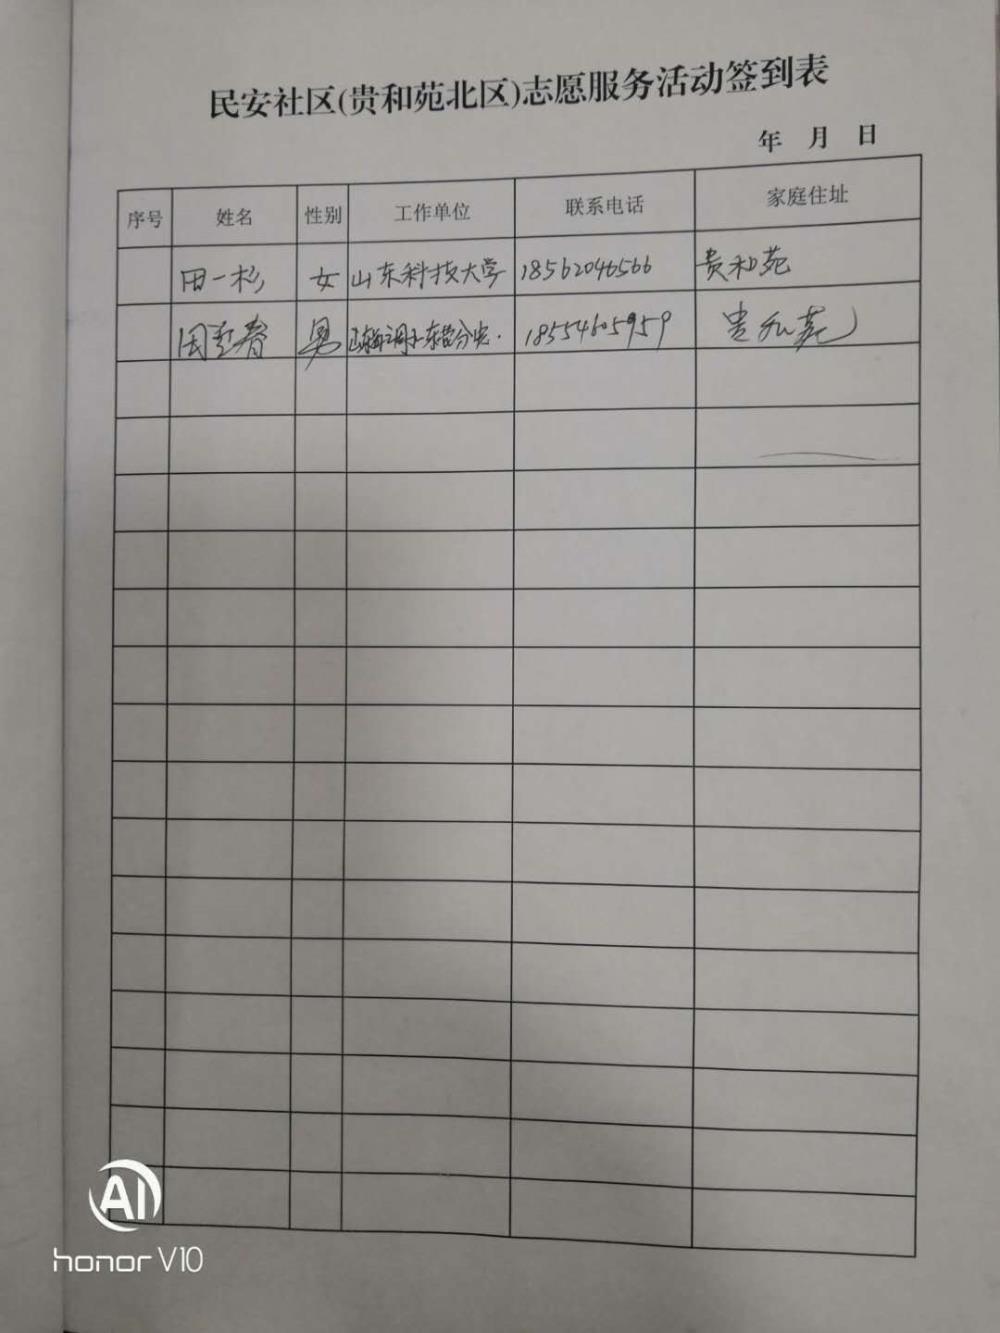 民安社区(贵和苑北区)志愿服务活动签到表
年 月 日
序号 姓名 性别 工作单位 联系电话 家庭住址
田一杉 女 山东科技大学 18562046566 贵和苑
男 18554605959 贵和苑
AI
honor V10